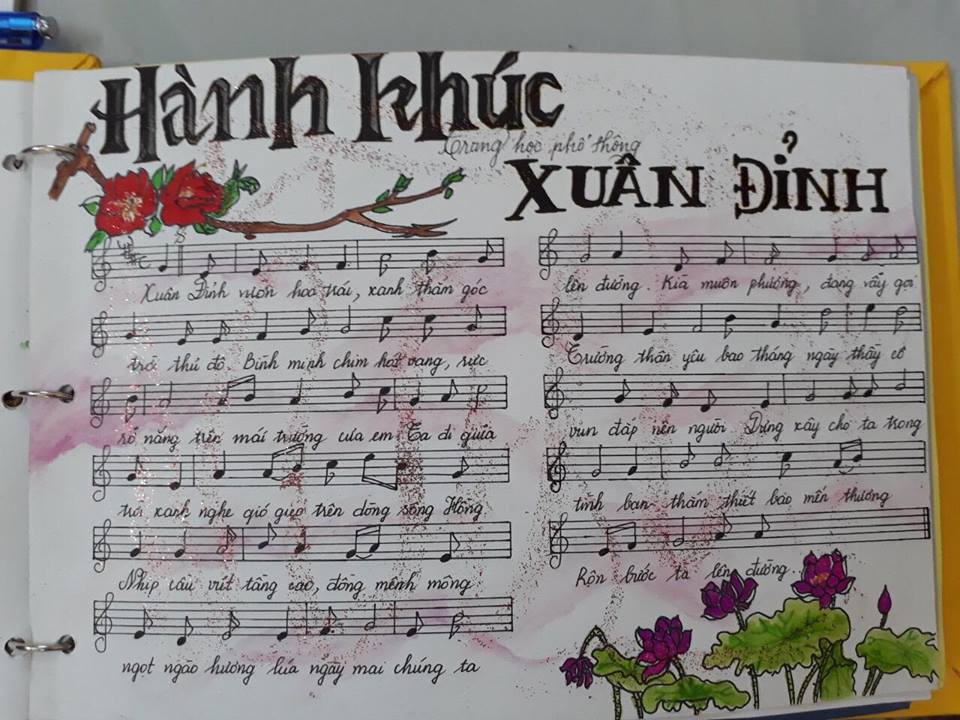 Hành khúc
Trung học phổ thông
XUÂN ĐỈNH
Xuân Đỉnh vườn hoa trái, xanh thắm góc
trời thủ đô. Bình minh chim hát vang, rực
rỡ nắng trên mái trường của em. Ta đi giữa
trời xanh nghe gió gợn trên dòng sông Hồng
Nhịp cầu vút tầng cao, đồng mênh mông
ngọt ngào hương lúa ngày mai chúng ta
lên đường. Kìa muôn phương, đang vẫy gọi
Trường thân yêu bao tháng ngày thầy cô
vun đắp nên người Dựng xây cho ta trong
tình bạn thắm thiết bao mến thương
Rộn bước ta lên đường.